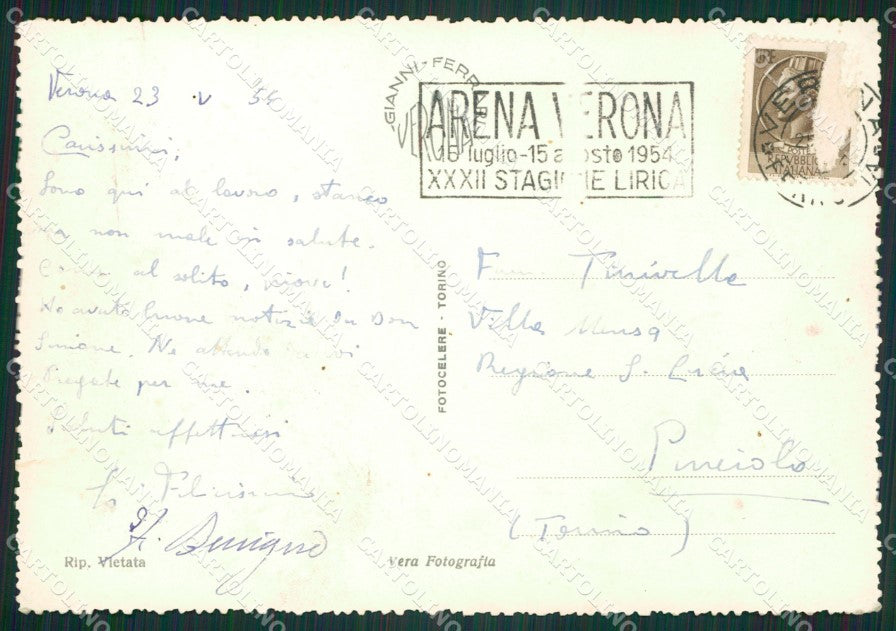 Verona 23 V 54
Carissimi,
Sono qui al lavoro, stanco
ma non male in salute.
Come al solito, piove!
Ho avuto buone notizie da Don
Simone. Ne attendo da voi
Pregate per me.
Saluti affettuosi
F. Benigno
Rip. Vietata
Vera Fotografia
FOTOCELERE - TORINO
GIANNI-FERRARA
VERONA
ARENA VERONA
15 luglio-15 agosto 1954
XXXII STAGIONE LIRICA
REPVBBLICA
ITALIANA
Turinetto
Villa Mensa
Regione S. Luca
Pineiolo
(Torino)
CARTOLINOMANIA